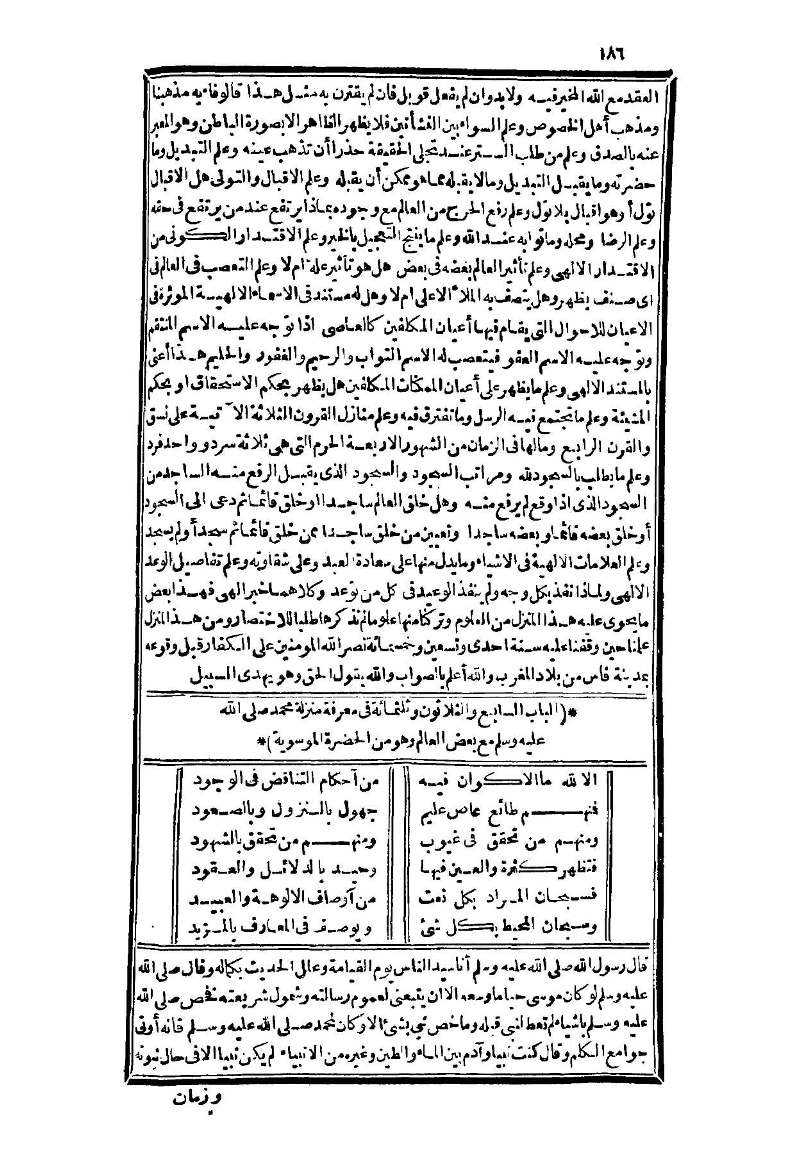 ١٨٦
العقد مع الله المخير فيه ولابد وان لم يفعل قوبل فان لم يقترن به مثل هذا قالوفاء به مذهبنا
ومذهب أهل الخصوص وعلم السواء بين النشأتين فلا يظهر الظاهر الا بصورة الباطن وهو المعبر
عنه بالصدق وعلم من طلب الستر عند تجلى الحقيقة حذرا أن تذهب عينه وعلم التبديل وما
حضرته وما يقبل التبديل وما لا يقبله مما هو ممكن أن يقبله وعلم الاقبال والتولى هل الاقبال
تول أو هو اقبال بلا تول وعلم رفع الحرج من العالم مع وجوده بماذا يرتفع عند من يرتفع فى حقه
وعلم الرضا ومحله وما ثوابه عند الله وعلم ما ينتج التعجيل بالخير وعلم الاقتدار الكونى من
الاقتدار الالهى وعلم تأثير العالم بعضه فى بعض هل هو تأثير علة ام لا وعلم التعصب فى العالم فى
اى صنف يظهر وهل يتصف به الملا ٔ الاعلى ام لا وهل له مستند فى الاسماء الالهية الموثرة فى
الاعيان للاحوال التى يقام فيها أعيان المكلفين كالعاصى اذا توجه عليه الاسم المنتقم
وتوجه عليه الاسم العفو فيتعصب له الاسم التواب والرحيم والغفور والحليم هذا أعنى
بالمستند الالهى وعلم ما يظهر على أعيان الممكنات المكلفين هل يظهر بحكم الاستحقاق او بحكم
المشيئة وعلم ما تجتمع فيه الرسل وما تفترق فيه وعلم منازل القرون الثلاثة الآتية على نسق
والقرن الرابع ومالها فى الزمان من الشهور الاربعة الحرم التى هى ثلاثة سرد وواحد فرد
وعلم ما يطلب بالسجود لله ومراتب السجود والسجود الذى يقبل الرفع منه الساجد من
السجود الذى اذا وقع لم يرفع منه وهل خلق العالم ساجدا او خلق قائما ثم دعى الى السجود
أو خلق بعضه قائما وبعضه ساجدا وتعيين من خلق ساجدا ممن خلق قائما ثم سجد أو لم يسجد
وعلم العلامات الالهية فى الاشياء وما يدل منها على سعادة العبد وعلى شقاوته وعلم تفاصيل الوعد
الالهى ولماذا نفذ بكل وجه ولم ينفذ الوعيد فى كل من توعد وكلاهما خبر الهى فهذا بعض
ما يحوى عليه هذا المنزل من العلوم وتركنا منها علوما لم نذكرها طلبا للاختصار ومن هذا المنزل
علمنا حين وقفنا عليه سنة احدى وتسعين وخمسمائة نصر الله المومنين على الكفار قبل وقوعه
بمدينة فاس من بلاد المغرب والله أعلم بالصواب والله يقول الحق وهو يهدى السبيل
*(الباب السابع والثلاثون وثلثمائة فى معرفة منزلة محمد صلى الله
عليه وسلم مع بعض العالم وهو من الحضرة الموسوية)*
الا لله ما الاكوان فيه من آحكام التناقض فى الوجود
فنهم طائع عاص عليم جهول بالنزول وبالصعود
ومنهم من تحقق فى غيوب ومنهم من تحقق بالشهود
فتظهر كثرة والعين فيها وحيد بالدلائل والعقود
فسبحان المراد بكل نعت من آوصاف الالوهة والعبيد
وسبحان المحيط بكل شئ ويوصف فى المعارف بالمزيد
قال رسول الله صلى الله عليه وسلم أنا سيد الناس يوم القيامة وعالى الحديث بكماله وقال صلى الله
عليه وسلم لو كان موسى حيا ما وسعه الا ان يتبعنى لعموم رسالته وشمول شريعته فخص صلى الله
عليه وسلم باشياء لم تعط لنبى قبله وما خص نبي بشئ الا وكان لمحمد صلى الله عليه وسلم فانه أوتى
جوامع الكلم وقال كنت نبيا وآدم بين الماء والطين وغيره من الانبياء لم يكن نبيا الا فى حال نبوته
وزمان